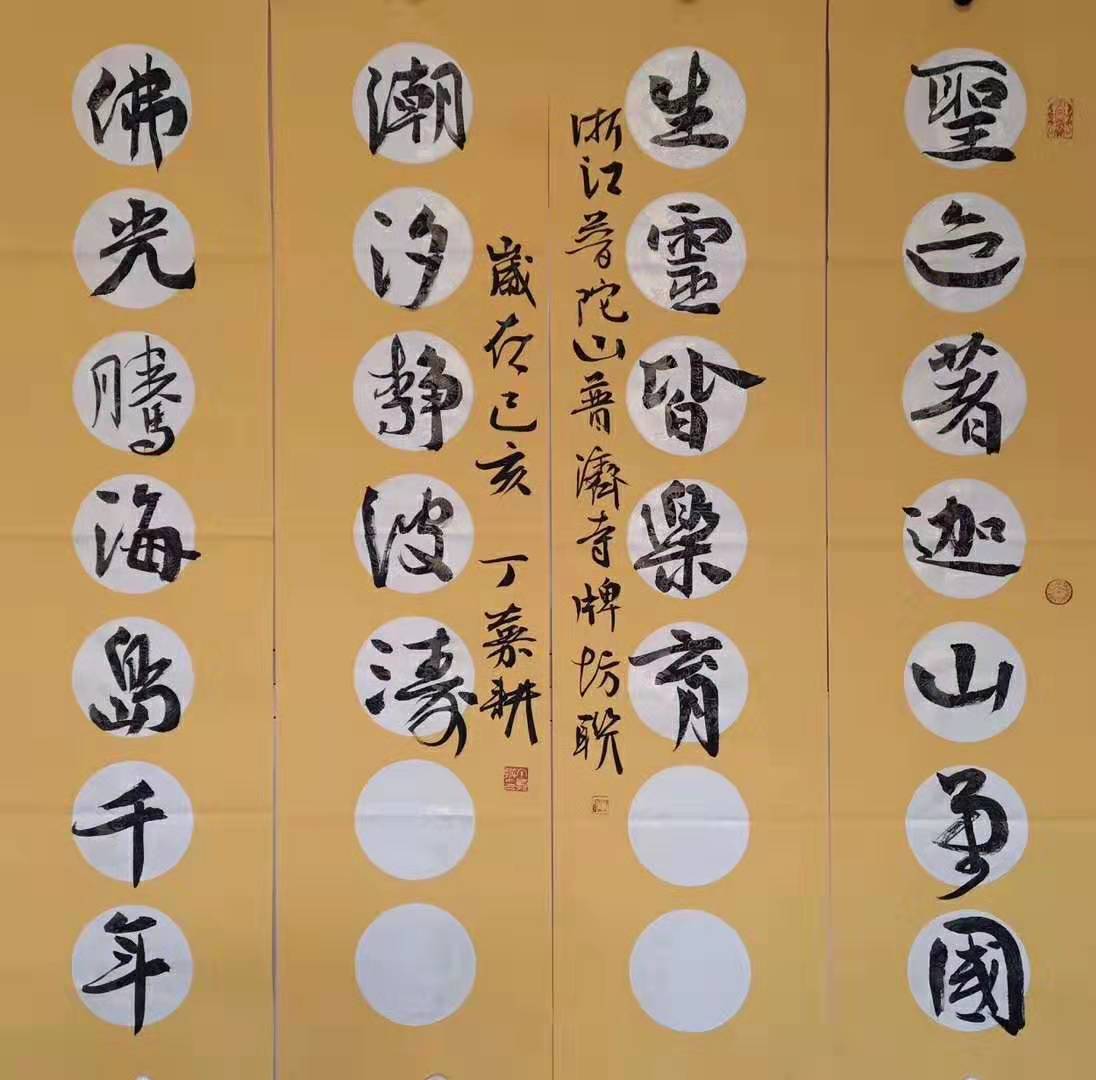 聖著迦山萬國
生靈皆樂育
浙江普陀山普濟寺牌坊聯
佛光騰海島千年
潮汐靜波濤
歲在己亥 丁慕耕